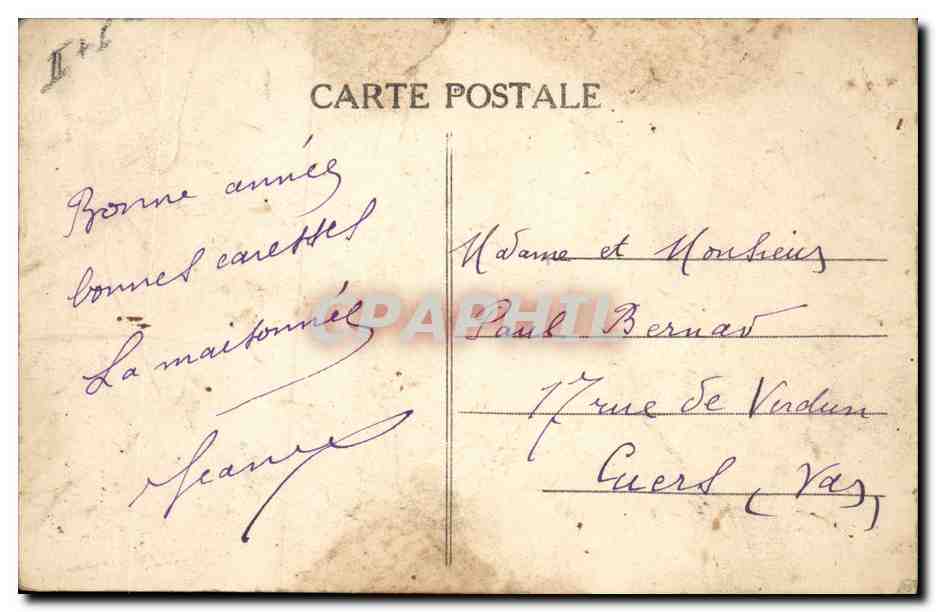 CARTE POSTALE
Bonne année
bonnes caresses
La maisonnée
Jeanne
Madame et Monsieur
Paul Bernad
17 rue de Verdun
Cuers (Var)
CPAPHIL